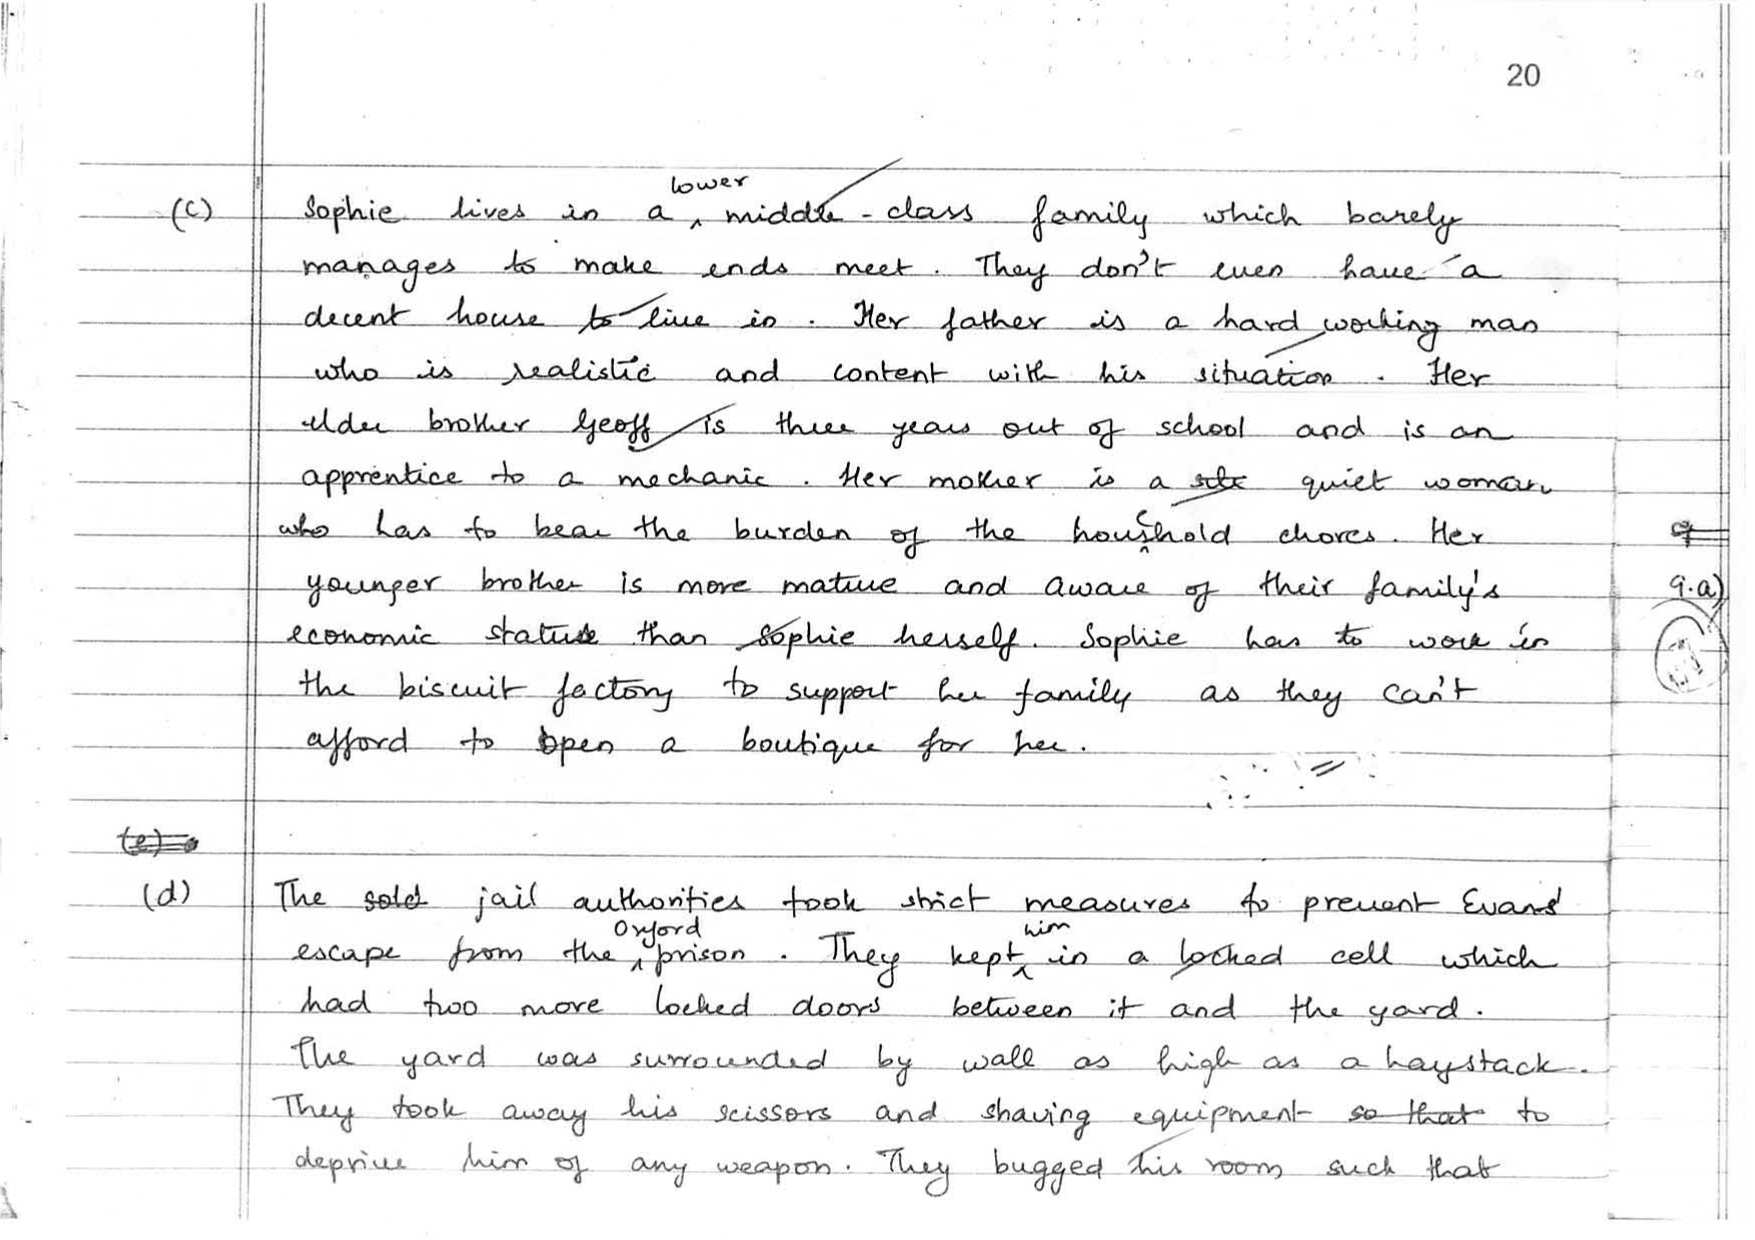 20
(c) Sophie lives in a lower middle-class family which barely
manages to make ends meet. They don't even have a
decent house to live in. Her father is a hard working man
who is realistic and content with his situation. Her
elder brother Geoff is three years out of school and is an
apprentice to a mechanic. Her mother is a quiet woman
who has to bear the burden of the household chores. Her
younger brother is more mature and aware of their family's
9.a)
economic status than Sophie herself. Sophie has to work in
the biscuit factory to support her family as they can't
afford to open a boutique for her.
(e)
(d) The sold jail authorities took strict measures to prevent Evans'
escape from the Oxford prison. They kept him in a locked cell which
had two more locked doors between it and the yard.
The yard was surrounded by wall as high as a haystack.
They took away his scissors and shaving equipment so that to
deprive him of any weapon. They bugged his room such that